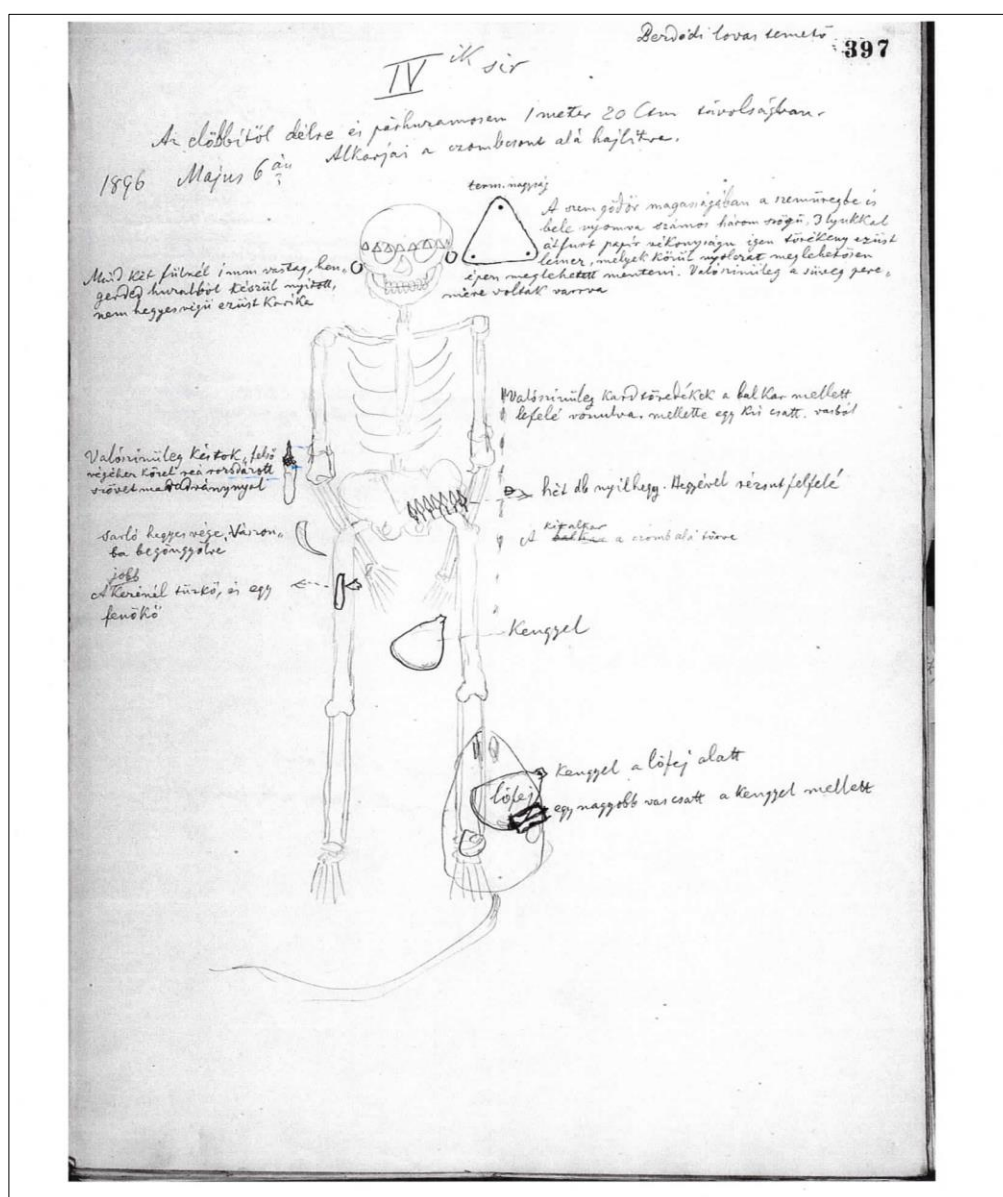 Berdódi lovas temető
397
IV ik sir
Az előbbitől délre és párhuzamosan 1 meter 20 Ctm távolságban.
1896 Majus 6 án Alkarjai a czombcsont alá hajlitva.
term. nagyság
A szem gödör magasságában a szemüregbe is
bele nyomva számos három szögü, 3 lyukkal
átfurt papir vékonyságu igen törékeny ezüst
lemez, melyek közül nyolczat meglehetősen
épen meglehetett menteni. Valószinüleg a süveg pere„
mére voltak varrva
Mind két fülnél 1 mm vastag, hen„
gerded huzalból készül nyitott,
nem hegyes végü ezüst karika
Valószinüleg kard töredékek a bal kar mellett
lefelé vonulva. mellette egy kis csatt. vasból
Valószinüleg késtok, felső
végéhez közel reá rozsdázott
szövet maradványnyal
hét db nyilhegy. Hegyével rézsut felfelé
sarló hegyes vége. Vászon„
ba begöngyölve
A balkar a czomb alá törve
jobb
A kezénél tüzkő, és egy
fenőkő
Kengyel
Kengyel a lófej alatt
lófej
egy nagyobb vas csatt a Kengyel mellett